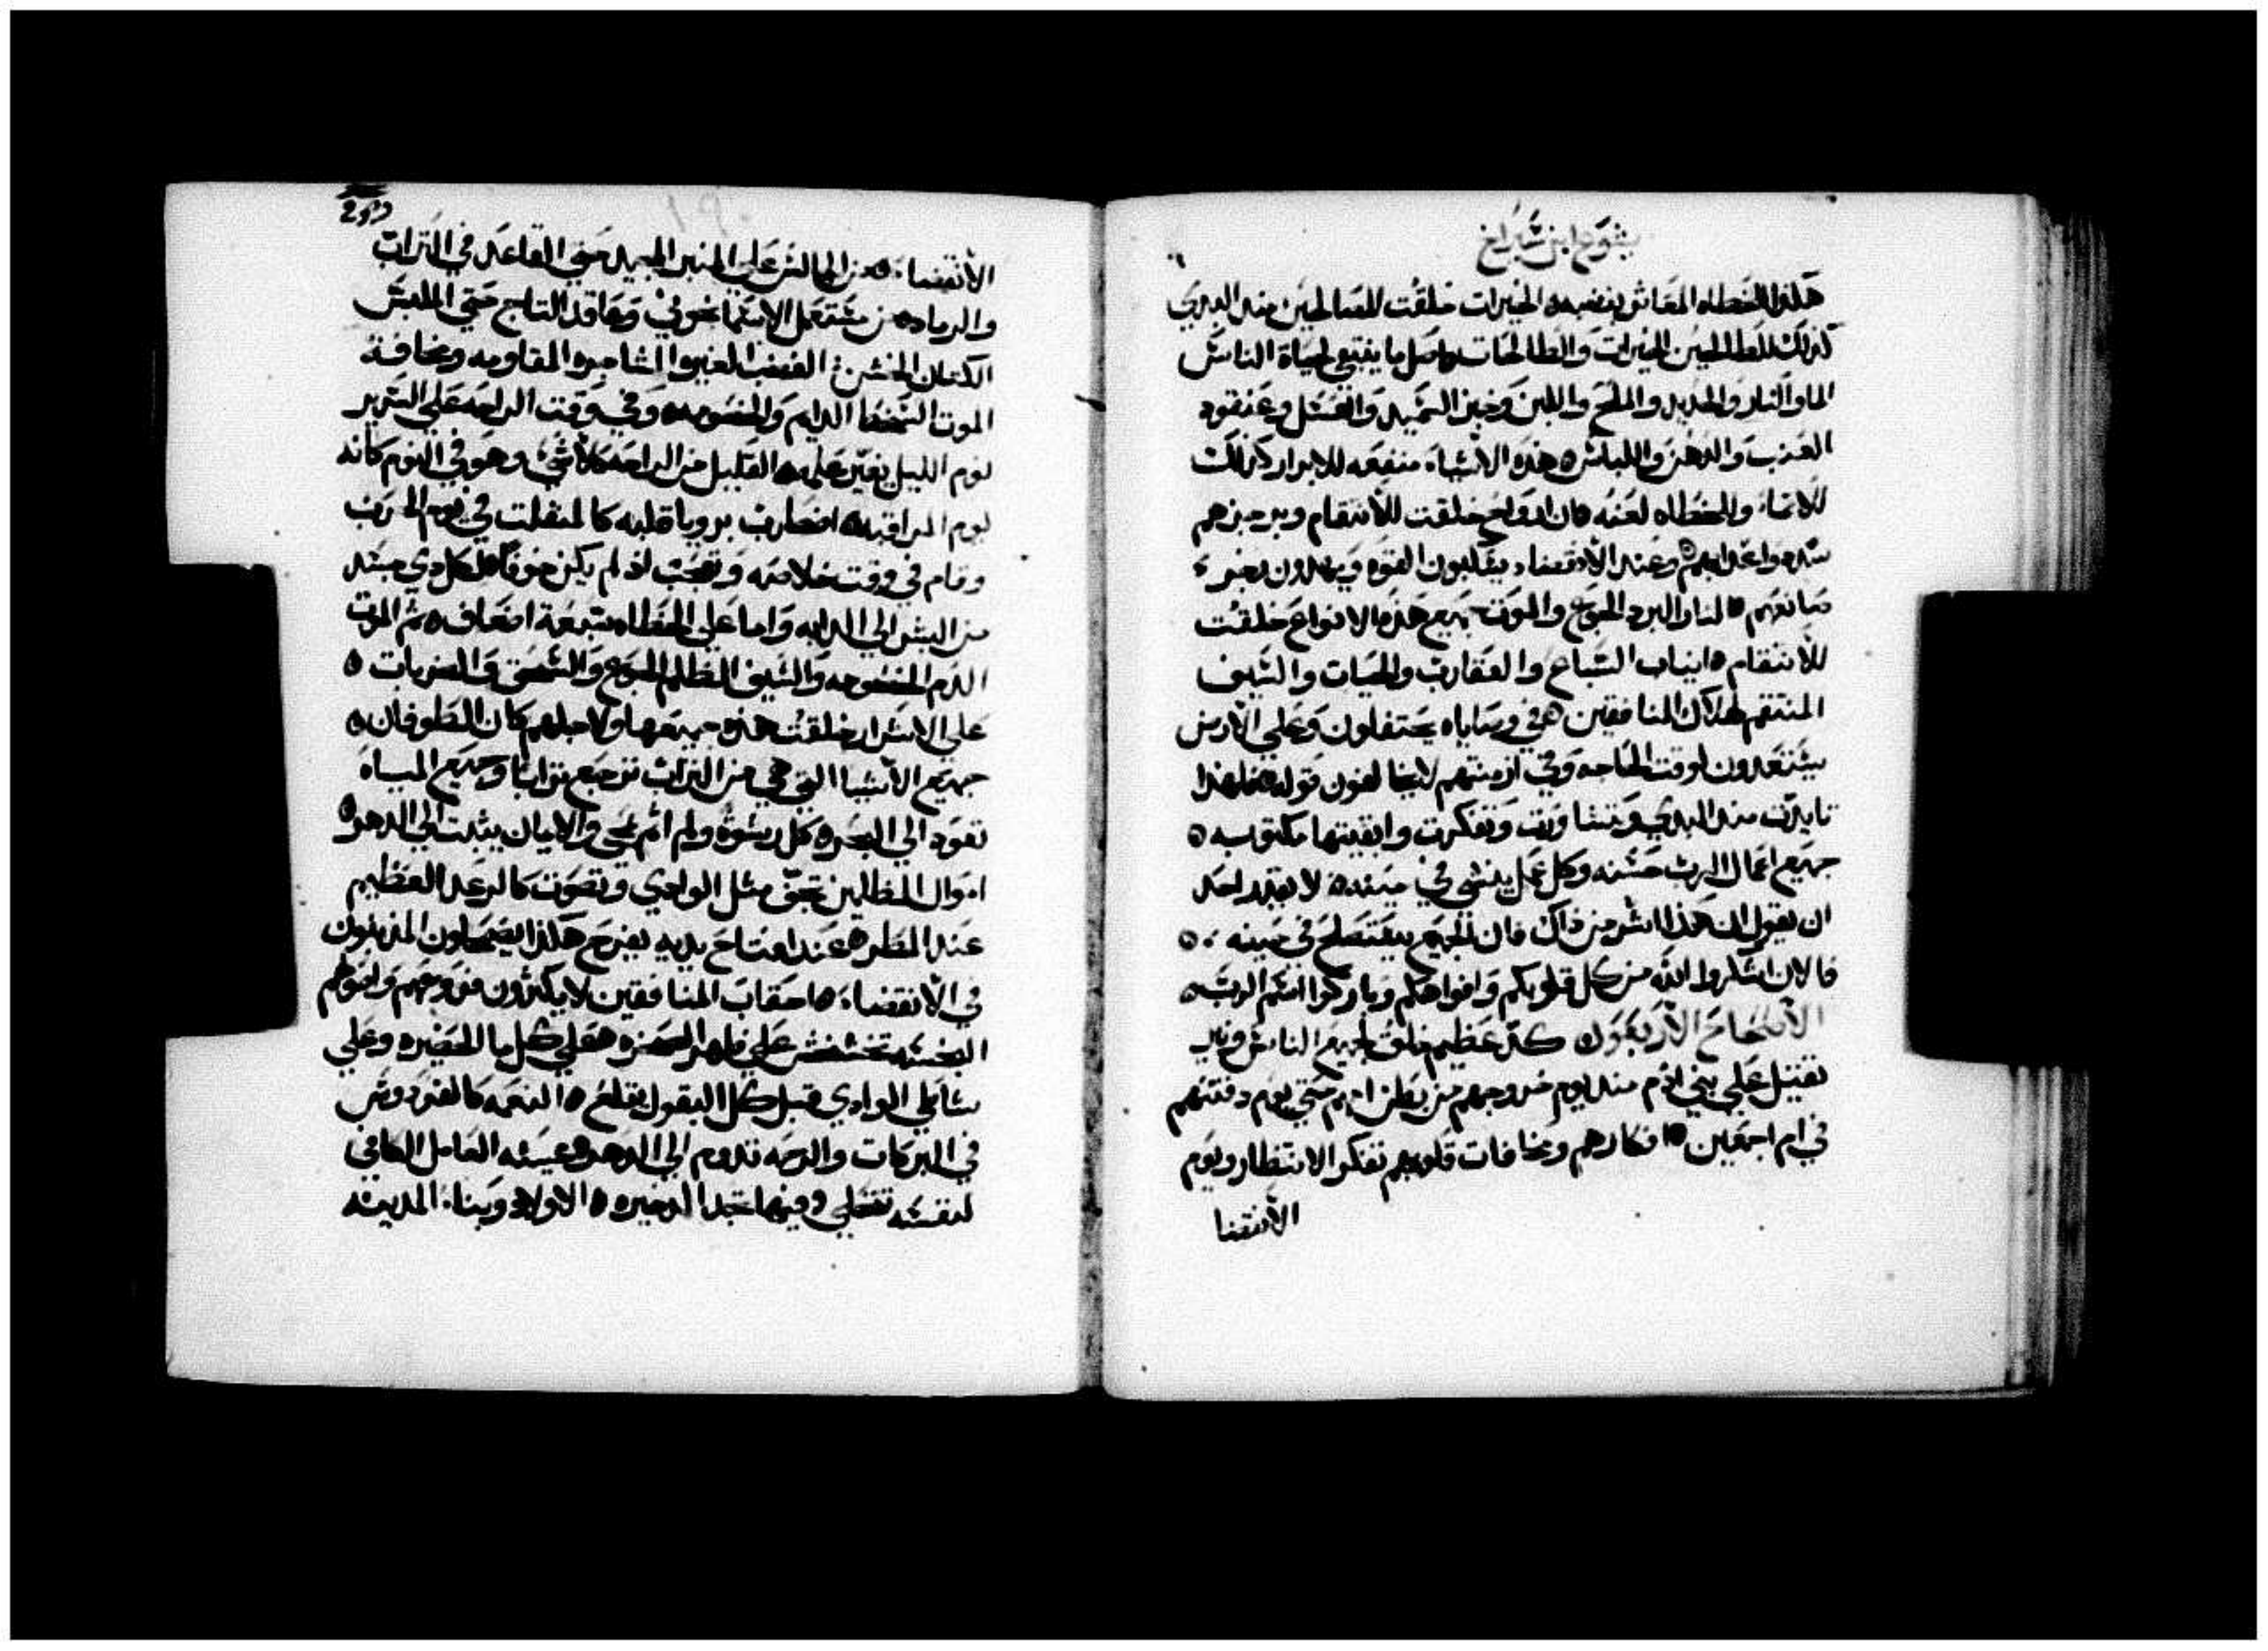 يشوع ابن شيراخ
هكذا للخطاه المعاثر بغضبه ه الخيرات خلقت للصالحين منذ البدي
كذلك للطالحين الخيرات والطالحات ه اصل ما ينبغي لحياة الناس
الما والنار والحديد والملح واللبن وخبز السميد والعسل وعنقود
العنب والدهن واللباس ه هذه الاشياء منفعه للابرار كذلك
للاثماء والخطاه لعنه ه ان ارواح خلقت للانتقام وبرجزهم
شددوا عذابهم ه وعند الانقضاء يسكبون القوه ويهدون رجز
صانعهم ه النار البرد الجوع والموت جميع هذه الانواع خلقت
للانتقام ه انياب السباع والعقارب والحيات والسيف
المنتقم لهلاك المنافقين ه في وصاياه يحتفلون وعلي الارض
يستعدون لوقت الحاجه وفي ازمنتهم لا يخالفون قوله ه فلهذا
تايدت منذ البدي وتشاورت وتفكرت وابقيتها مكتوبه ه
جميع اعمال الرب حسنه وكل عمل ينشي في حينه ه لا يقدر احد
ان يقول ان هذا اشر من ذاك فان الجميع يستصلح في حينه ه
فالان اشكروا الله من كل قلوبكم وافواهكم وباركوا اسم الرب ه
الاصحاح الاربعون كد عظيم خلق لجميع الناس ونير
ثقيل علي بني ادم منذ يوم خروجهم من بطن امهم حتي يوم دفنتهم
في ام اجمعين ه افكارهم ومخافات قلوبهم تفكر الانتظار ويوم
الانقضا
الانقضاء ه من الجالس علي المنبر المجيد حتي القاعد في التراب
والرماد ه من مستعمل الاسمانجوني وعاقد التاج حتي الملبس
الكتان الخشن الغضب الغيره المشاجره المقاومه ومخافة
الموت السخط الدايم والخصومه ه وفي وقت الراحه علي السرير
نوم الليل يغير علمه ه القليل من الراحه كلا شي وهو في النوم كانه
يوم المراقبه ه اضطرب برويا قلبه كالمنفلت في يوم الحرب
وقام في وقت خلاصه وتعجب اذ لم يكن خوفا ه كل ذي جسد
من البشر الي الدابه واما علي الخطاه سبعة اضعاف ه ثم الموت
الدم الخصومه والسيف الظلم الجوع والسحق والضربات ه
علي الاشرار خلقت هذه جميعها ولاجلهم كان الطوفان ه
جميع الاشيا التي هي من التراب ترجع ترابا وجميع المياه
تعود الي البحر ه كل رشوة ولم اثم تمحي والايمان يثبت الي الدهر ه
اموال الظالمين تجف مثل الوادي وتصوت كالرعد العظيم
عند المطر ه عند افتتاح يديه يفرح هكذا يضمحلون المذنبون
في الانقضاء ه احقاب المنافقين لا يكثرون فروعهم واصولهم
النجسه تخشخش علي ظهر الصخره ه علي كل ما الخضره وعلي
شاطي الوادي قبل كل البقول يقلع ه النعمه كالفردوس
في البركات والرحمه تدوم الي الدهر ه عيشه العامل الكافي
لنفسه تحلي وفيها تجد الدخيره ه الاولاد وبناء المدينه